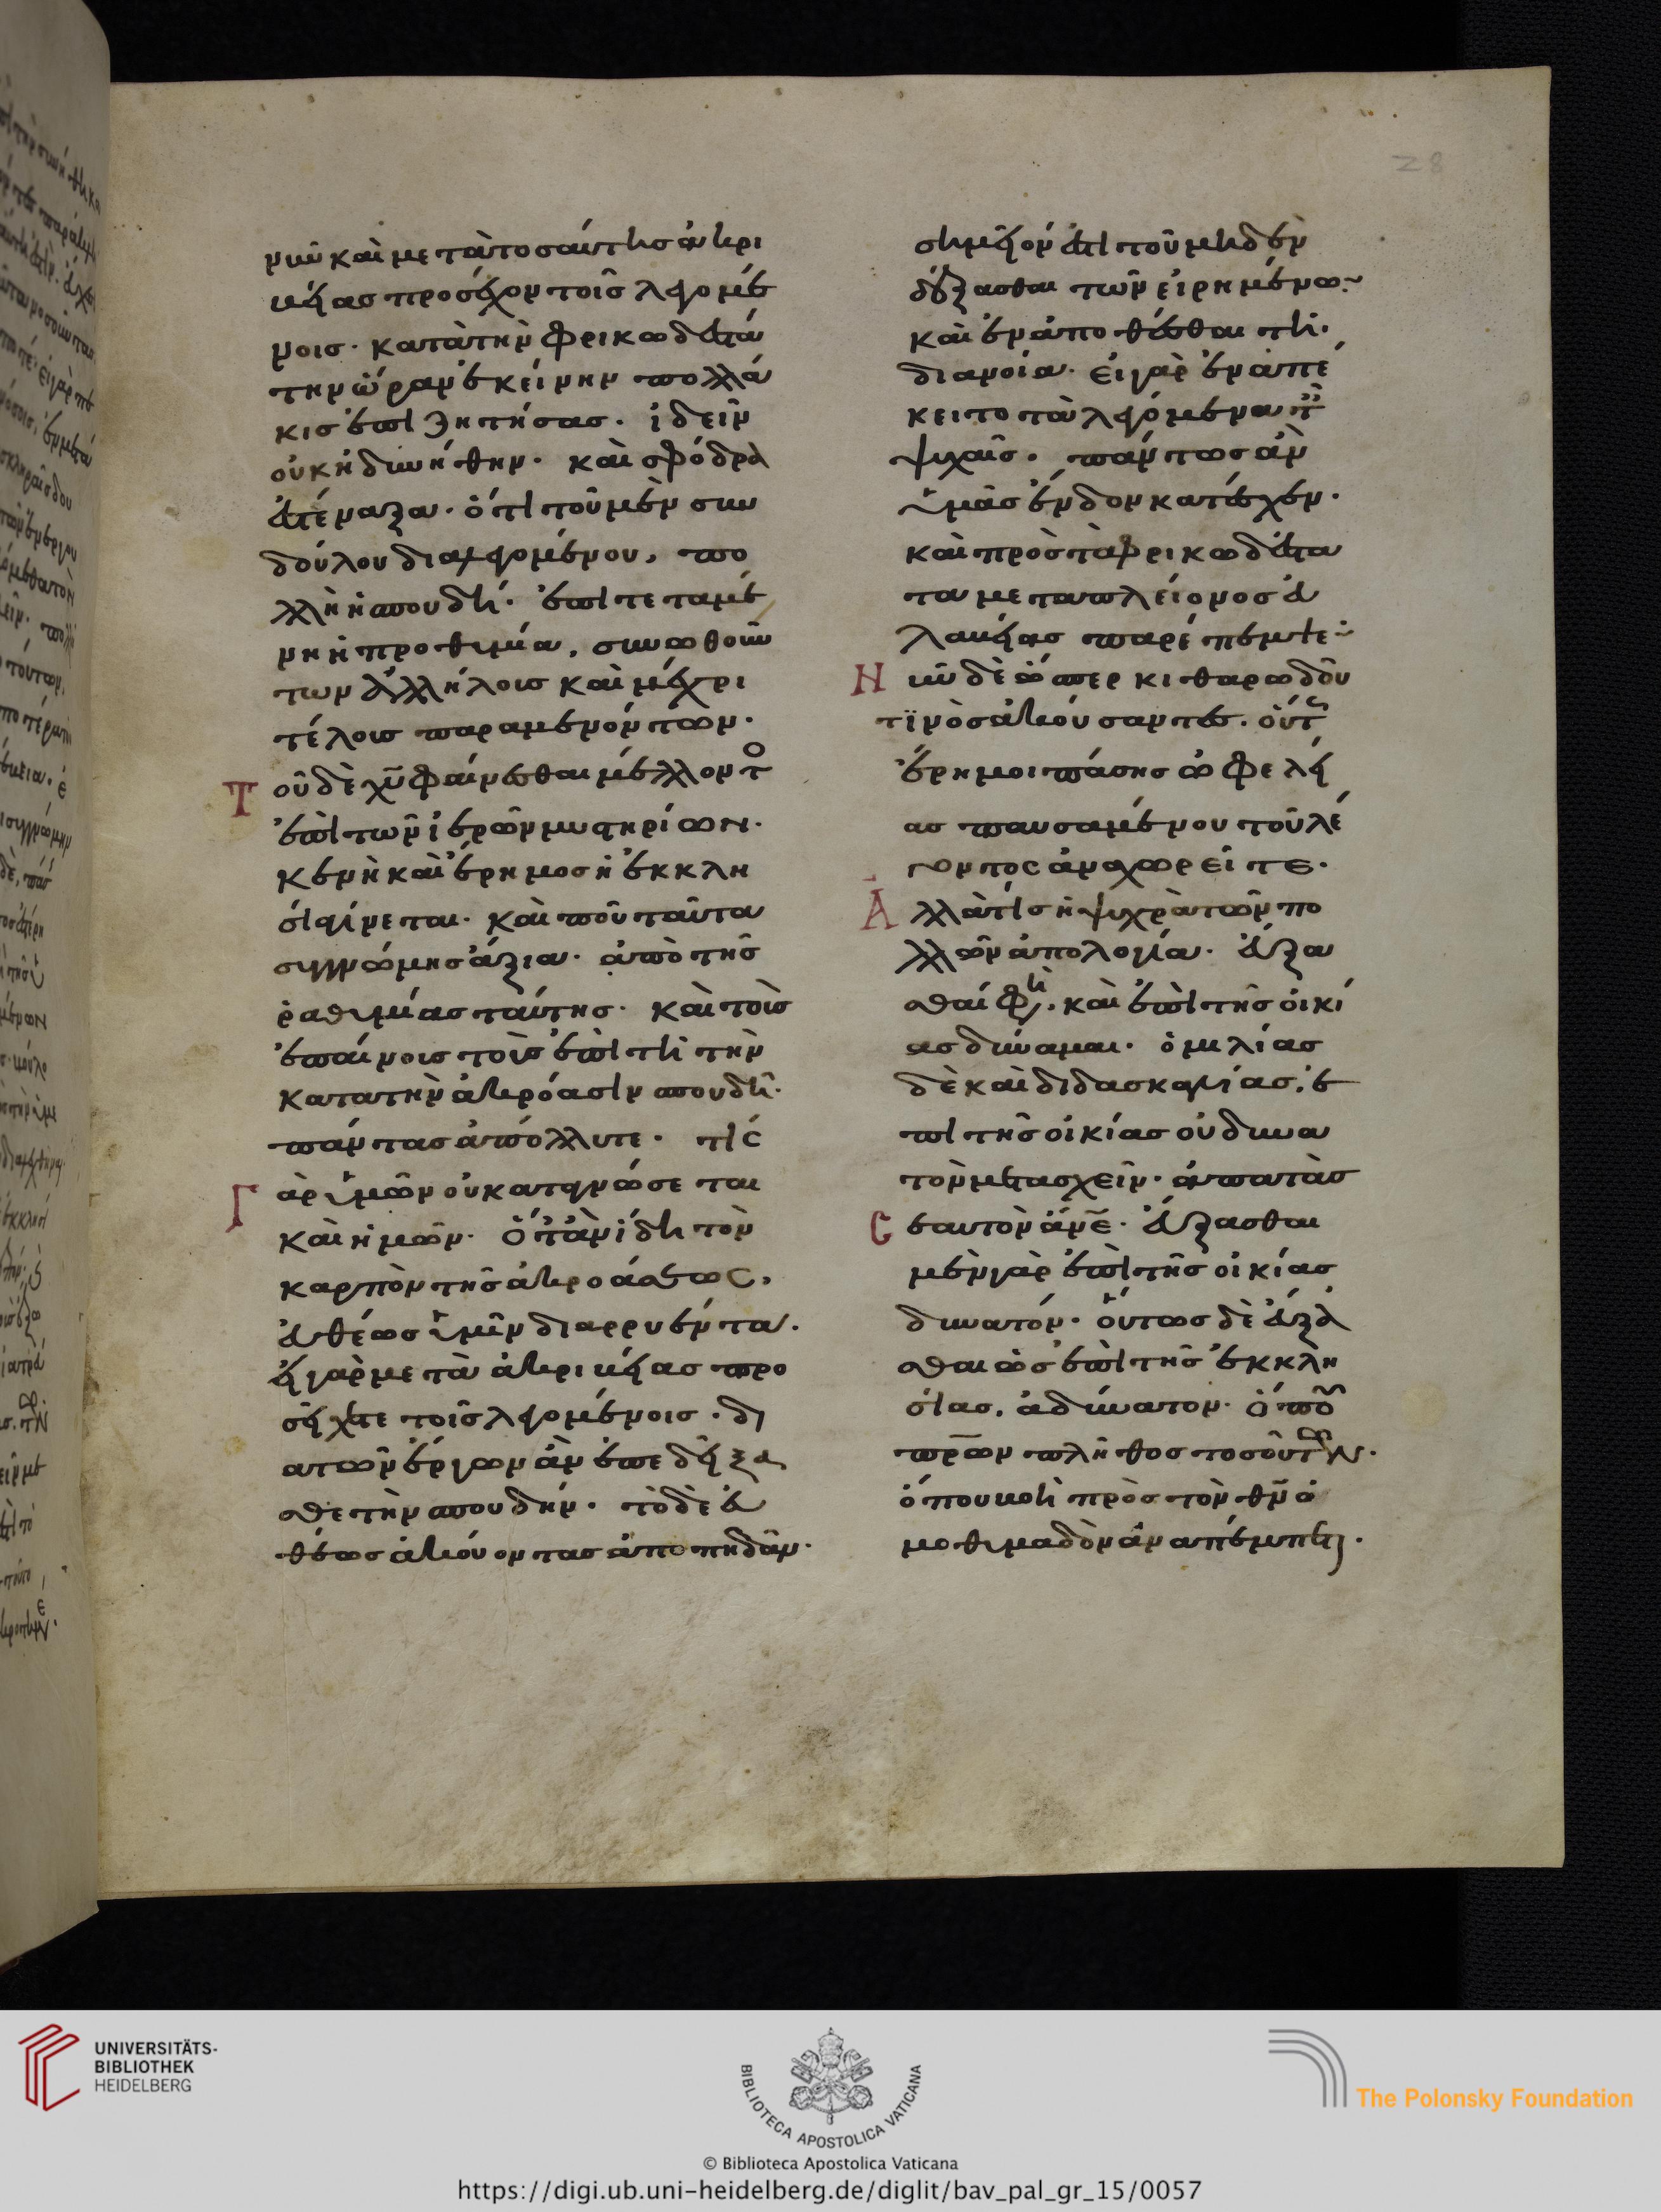 νυν καὶ μετὰ τοσαύτης ἀκρι
βείας προσέχον τοῖς λεγομέ
νοις· κατὰ τὴν φρικωδεστά
την ὥραν ἐκείνην πολλά
κις ἐπιζητήσας· ἰδεῖν
οὐκ ἠδυνήθην· καὶ σφόδρα
ἐστέναξα· ὅτι τοῦ μὲν συν
δούλου διαλεγομένου, πο
λλὴ ἡ σπουδή· ἐπιτεταμέ
νη ἡ προθυμία, συνωθούν
των ἀλλήλοις καὶ μέχρι
τέλους παραμενόντων·
Τοῦ δὲ χ̅υ̅ φαίνεσθαι μέλλοντο
ἐπὶ τῶν ἱερῶν μυστηρίων·
κενὴ καὶ ἔρημος ἡ ἐκκλη
σία γίνεται· καὶ ποῦ ταῦτα
συγγνώμης ἄξια· ἀπὸ τῆς
ῥαθυμίας ταύτης· καὶ τοὺς
ἐπαίνους τοὺς ἐπὶ τῆ τὴν
κατα τὴν ἀκρόασιν σπουδῆ·
πάντας ἀπόλλυτε· τίς
Γὰρ ὑμῶν οὐ καταγνώσεται
καὶ ἡμῶν· ὅταν ἴδη τὸν
καρπὸν τῆς ἀκροάσεως,
εὐθέως ὑμῖν διαρρυέντα·
εἰ γὰρ μετὰ ἀκριβείας προ
σείχετε τοῖς λεγομένοις· δι
α τῶν ἔργων ἂν ἐπεδείξα
σθε τὴν σπουδήν· τὸ δὲ εὐ
θέως ἀκούοντας ἀποπηδᾶν·
σημεῖον ἐστι τοῦ μηδὲν
δέξασθαι τῶν εἰρημένων·
καὶ ἐναποθέσθαι τῆ·
διανοία· εἰ γὰρ ἐναπέ
κειτο τὰ λεγόμενα τ
ψυχαῖς· πάντως ἂν
ὑμᾶς ἔνδον κατέσχεν·
καὶ πρὸς τὰ φρικωδέστα
τα μετα πλείονος εὐ
λαβείας παρέπεμπεν·
Νῦν δὲ ὥσπερ κιθαρωδοῦ
τϊνὸς ἀκούσαντες· οὕτ
ἔρημοι πάσης ὠφελεί
ας παυσαμένου τοῦ λέ
γοντος ἀναχωρεῖτε·
Ἀλλὰ τίς ἡ ψυχρὰ τῶν πο
λλῶν ἀπολογία· εὔξα
σθαί φη· καὶ ἐπὶ τῆς οἰκί
ας δύναμαι· ὁμιλίας
δὲ καὶ διδασκαλίας· ἐ
πὶ τῆς οἰκίας οὐ δυνα
τὸν μετασχεῖν· ἀπατᾶς
Ἑαυτὸν ἄν̅ε̅· εὔξασθαι
μὲν γὰρ ἐπὶ τῆς οἰκίας
δυνατόν· οὕτως δὲ εὔξα
σθαι ὡς ἐπὶ τῆς ἐκκλη
σίας, ἀδύνατον· ὅπου
π̅ρ̅ων πλῆθος τοσοῦτον·
ὅπου βοὴ πρὸς τὸν θ̅ν̅ ὁ
μοθυμαδὸν ἀναπέμπεται·
28
UNIVERSITÄTS-
BIBLIOTHEK
HEIDELBERG
BIBLIOTECA APOSTOLICA VATICANA
The Polonsky Foundation
© Biblioteca Apostolica Vaticana
https://digi.ub.uni-heidelberg.de/diglit/bav_pal_gr_15/0057